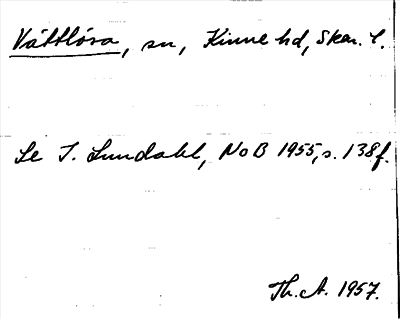 Vättlösa, sn, Kinne hd, Skar. l.
Se I. Lundahl, NoB 1955, s. 138f.
Th. A. 1957.